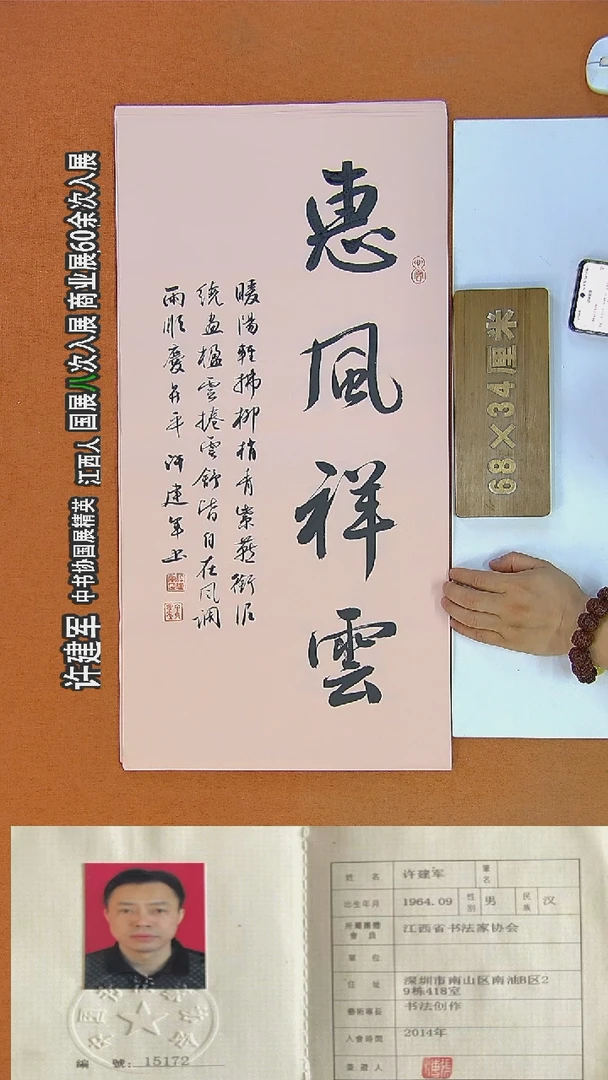 惠風祥雲
暖陽輕拂柳梢青紫燕銜泥
繞畫楹雲捲雲舒皆自在風調
雨順慶昇平許建軍書
68×34厘米
许建军 中书协国展精英 江西人 国展八次入展 商业展60余次入展
編 號:15172
姓 名 许建军 筆名
出生年月 1964.09 性别 男 民族 汉
所屬團體會員 江西省书法家协会
單 位
住 址 深圳市南山区南油B区2
9栋418室
藝術專長 书法创作
入會時間 2014年
簽證人